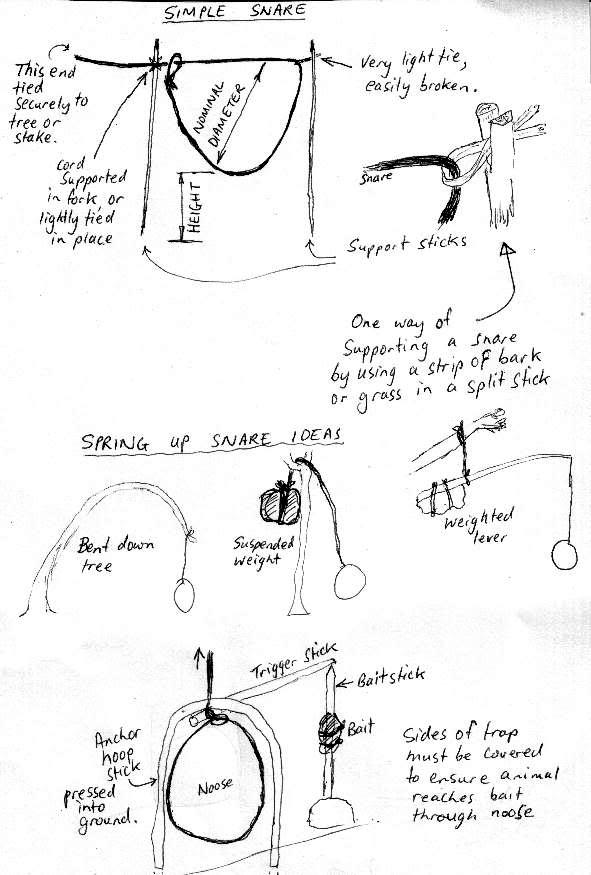 SIMPLE SNARE
This end
tied
securely to
tree or
stake.
Cord
Supported
in fork, or
lightly tied
in place
NOMINAL
DIAMETER
HEIGHT
Very light tie,
easily broken.
Snare
Support sticks
One way of
Supporting a snare
by using a strip of bark
or grass in a split stick
SPRING UP SNARE IDEAS
Bent down
tree
Suspended
weight
weighted
lever
Trigger stick
Bait stick
Bait
Anchor
hoop
stick
pressed
into
ground.
Noose
Sides of trap
must be covered
to ensure animal
reaches bait
through noose